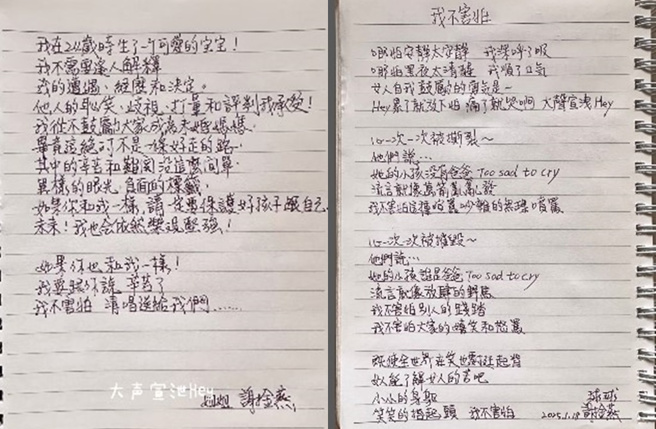 我在24歲時生了一個可愛的宝宝！
我不需要逢人解釋
我的遭遇、經歷和決定。
他人的恥笑、歧視、打量和評判我承受！
我從不鼓勵大家成為未婚媽媽，
畢竟這絕對不是一條好走的路。
其中的辛苦和難關沒這麼簡單
異樣的眼光，負面的標籤，
如果你和我一樣，請一定要保護好孩子跟自己
未來！我也會依然堅強！
如果你也和我一樣！
我要跟你說 辛苦了
我不害怕 清唱送給我們……
大声宣泄Hey
謝金燕
我不害怕
哪怕安靜太安靜 我深呼了吸
哪怕黑夜太清醒 我嘆了口氣
女人自我鼓勵的勇氣是~
Hey累了就放下怕 痛了就哭啊 大聲宣洩Hey
心一次一次被撕裂~
他們說…
她的小孩沒有爸爸 Too sad to cry
流言就像萬箭萬心發
我不害怕這種
心一次次被摧毀~
他們說…
她的小孩誰是爸爸 Too sad to cry
流言就像放肆的
我不害怕別人的踐踏
我不害怕大家的嘻笑和怒罵
既使全世界在笑也
女人的苦吧
小小的身軀
笑笑的抬起頭 我不害怕
球球
2025.1.18 謝金燕